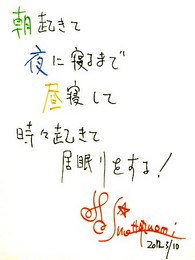 朝起きて
夜に寝るまで
昼寝して
時々起きて
居眠りをする!